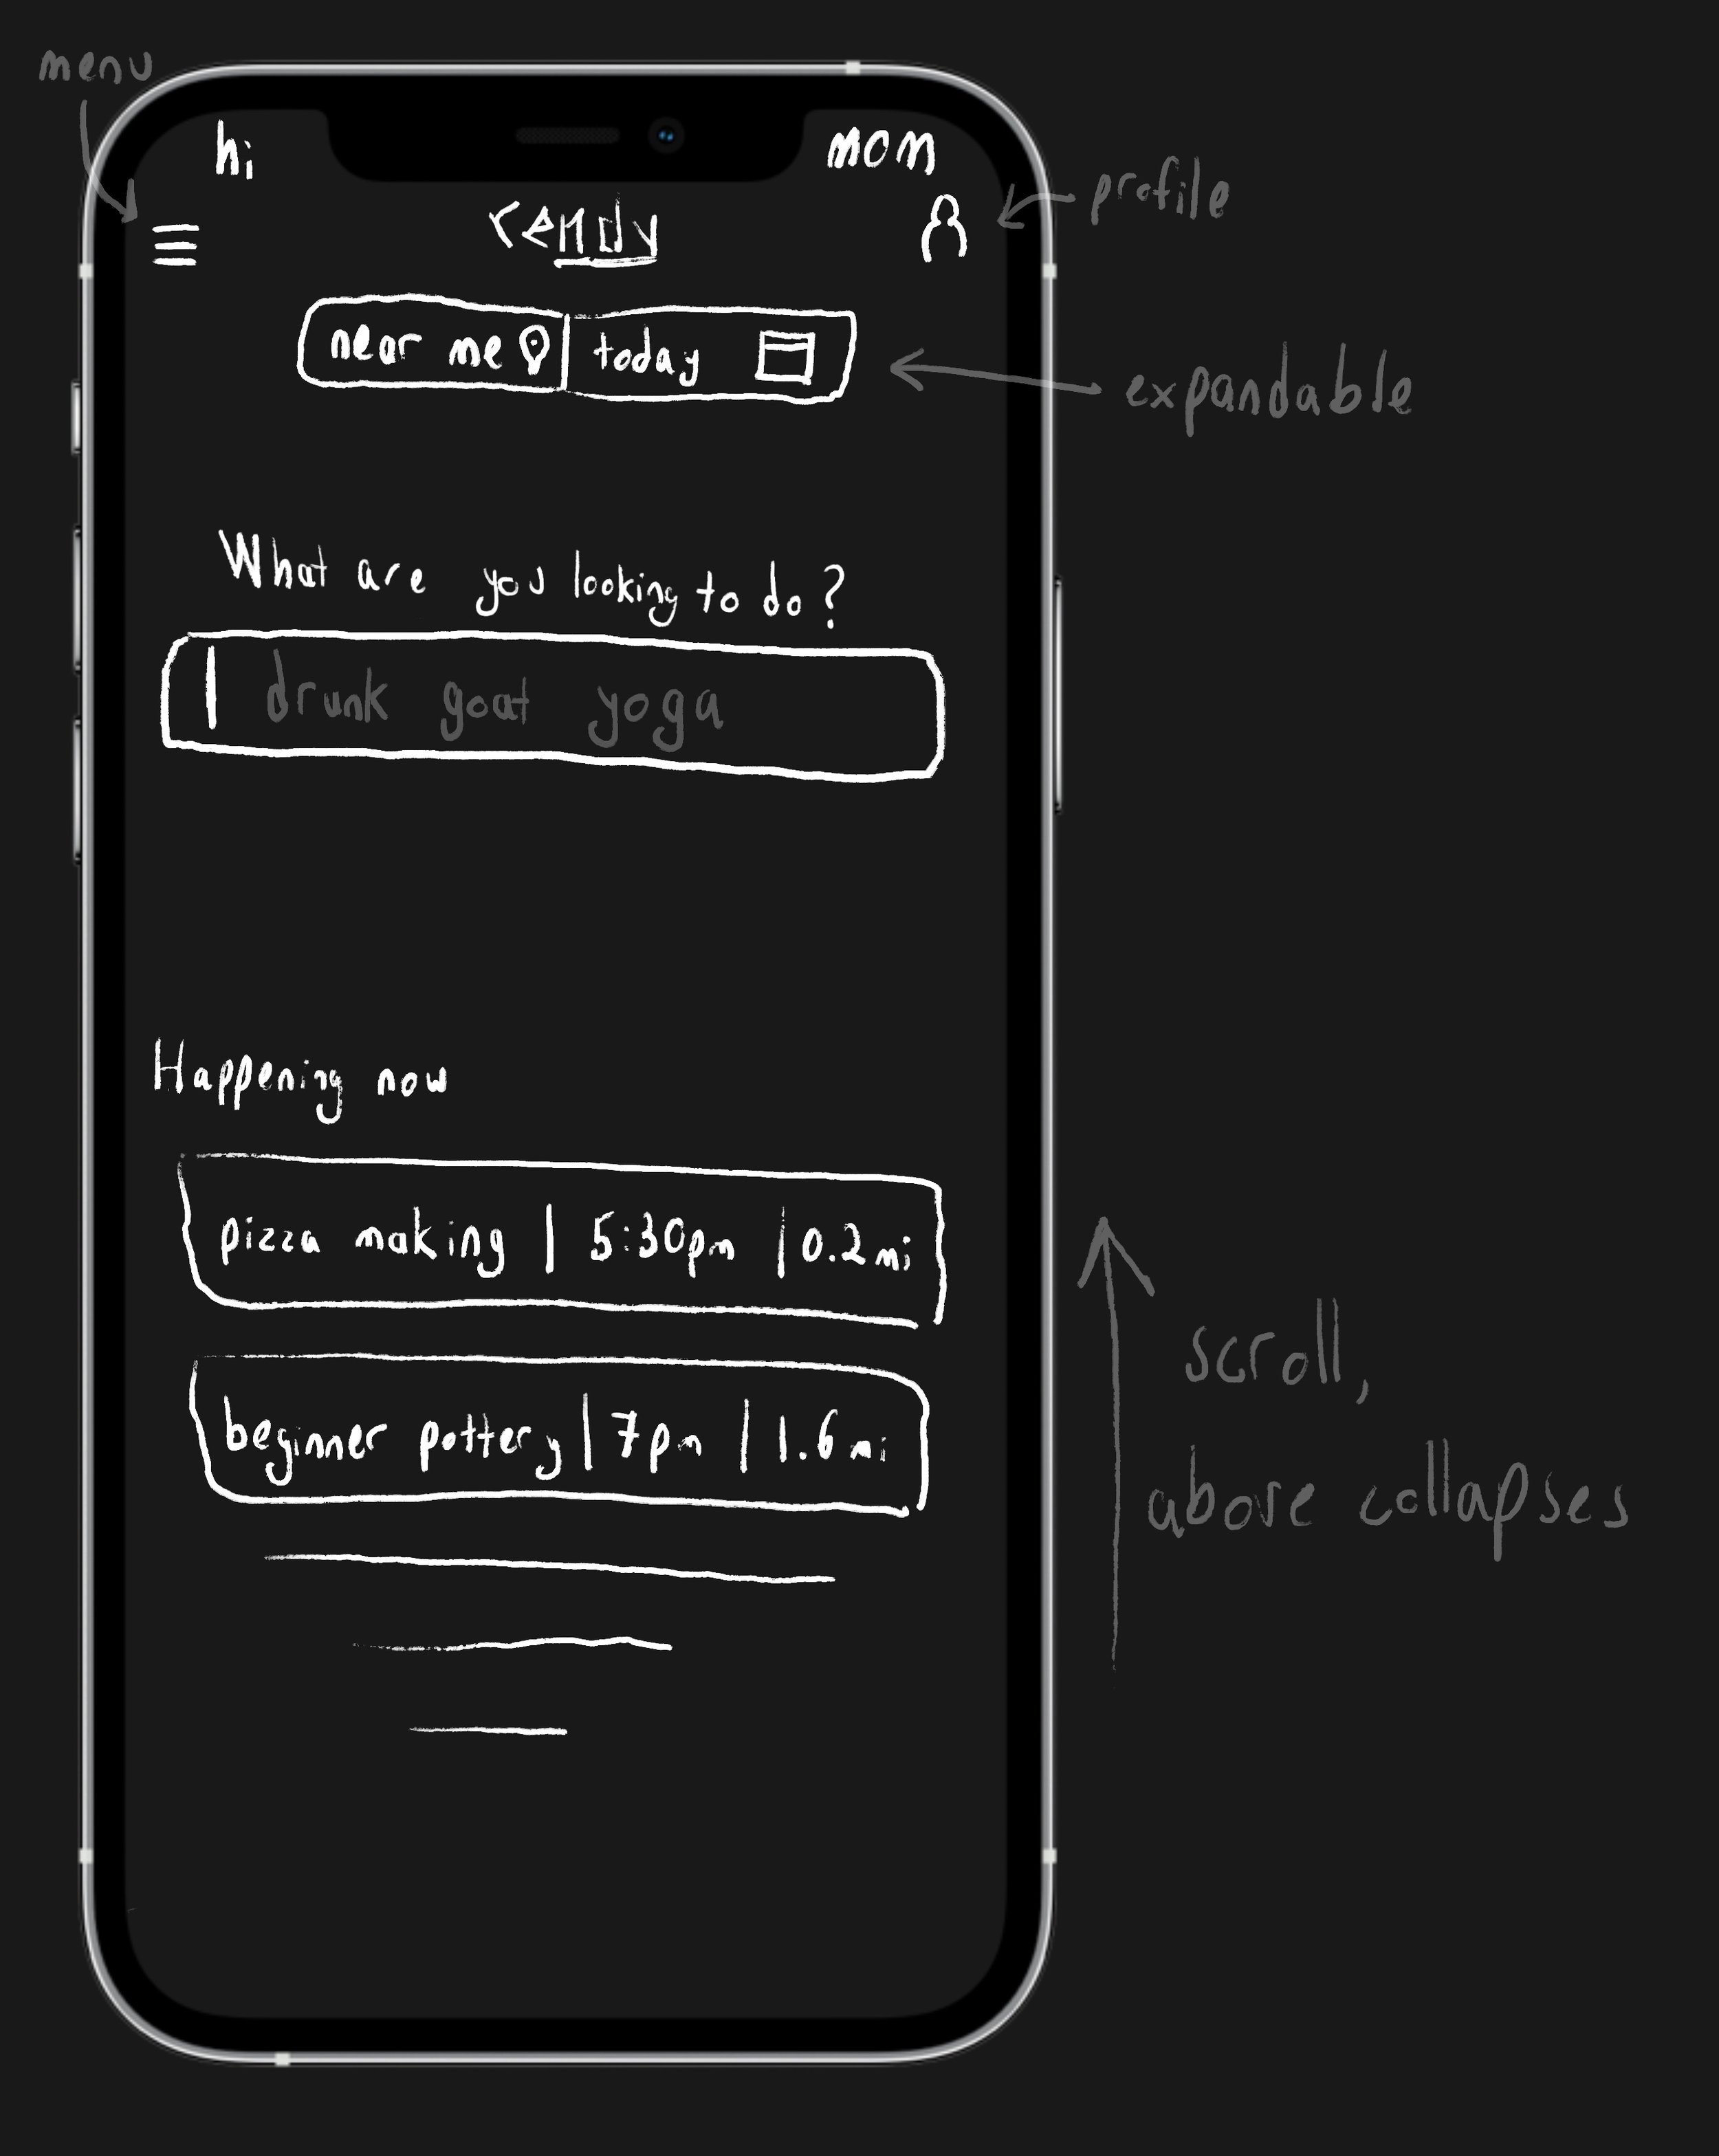 menu
hi mom
rendy
profile
near me today
expandable
What are you looking to do?
drunk goat yoga
Happening now
pizza making | 5:30pm | 0.2mi
beginner pottery | 7pm | 1.6mi
scroll,
above collapses